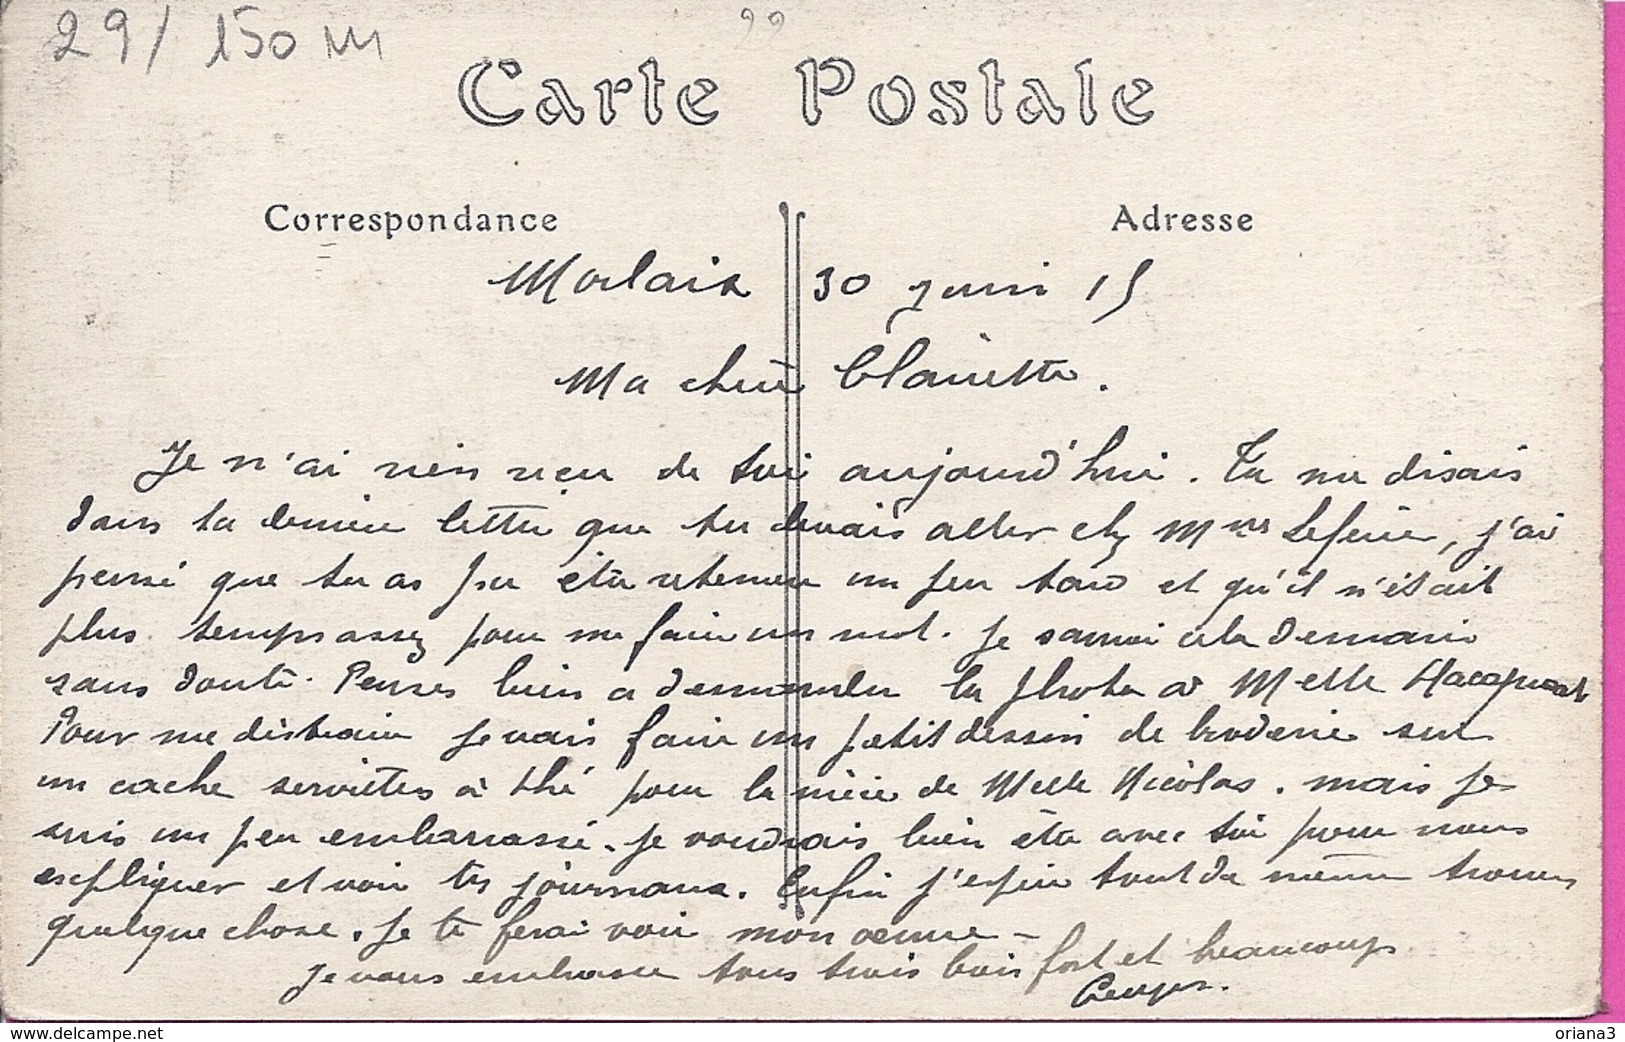 29/ 150 m
22
Carte Postale
Correspondance
Adresse
Morlaix 30 juin 15
Ma chère Clairette.
Je n'ai rien reçu de toi aujourd'hui. Tu me disais
dans ta dernière lettre que tu devais aller chez Mmes Lefeuvre, j'ai
pensé que tu as pu être retenue un peu tard et qu'il n'était
plus temps assez pour me faire un mot. Je saurai cela demain
sans doute. Penses bien a demander la photo à Melle
Pour me distraire je vais faire un petit dessin de broderie sur
un cache serviettes à thé pour la mère de Melle Nicolas. mais je
suis un peu embarrassé. je voudrais bien être avec toi pour nous
expliquer et voir tes journaux. Enfin j'espère tout de même trouver
quelque chose. Je te ferai voir mon œuvre –
Je vous embrasse tous trois bien fort et beaucoup
Georges.
www.delcampe.net
oriana3